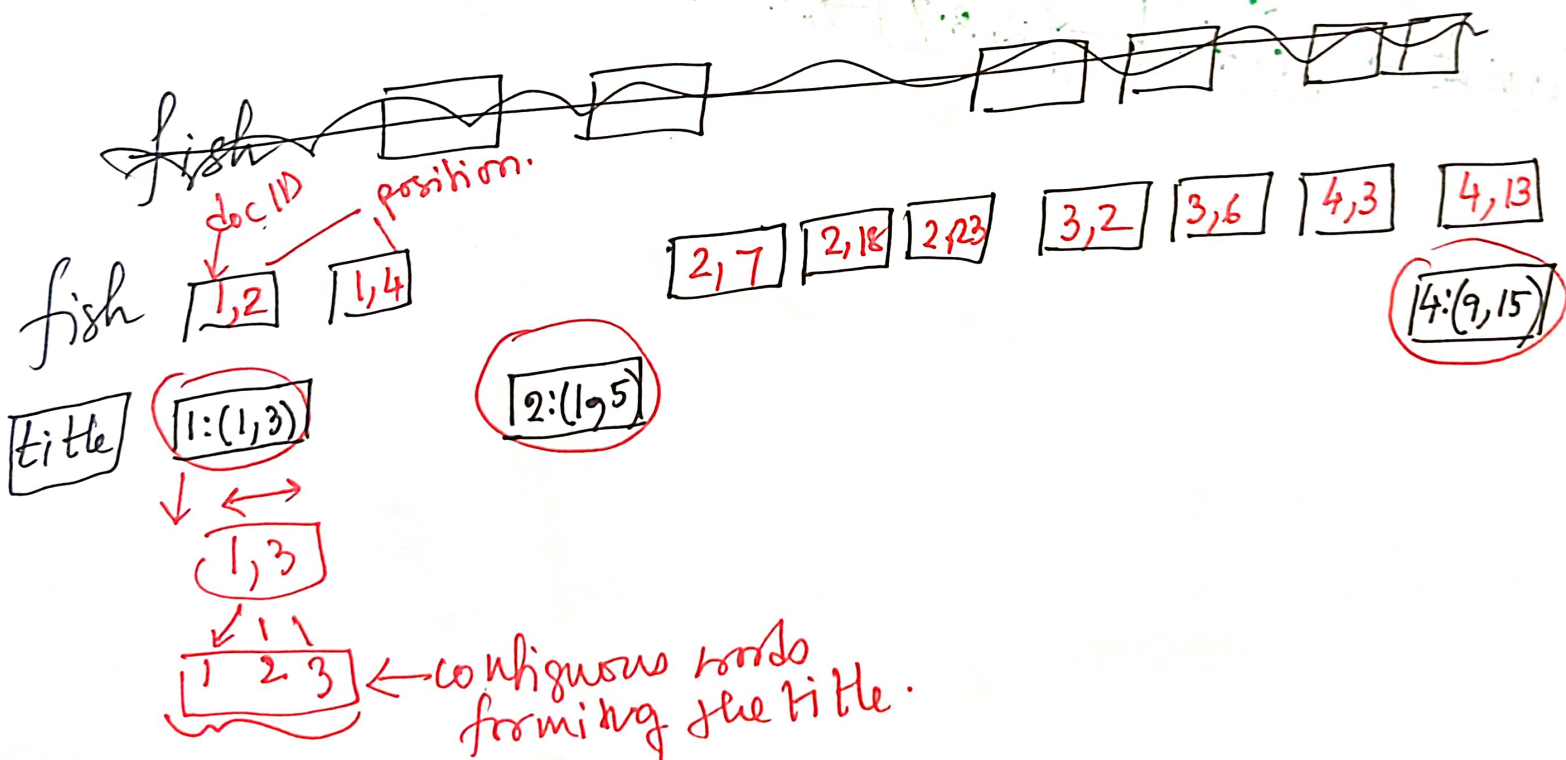 fish
docID position.
fish 1,2 1,4 2,7 2,18 2,23 3,2 3,6 4,3 4,13
title 1:(1,3) 2:(1,5) 4:(9,15)
1,3
1 2 3 ← contiguous words
forming the title.